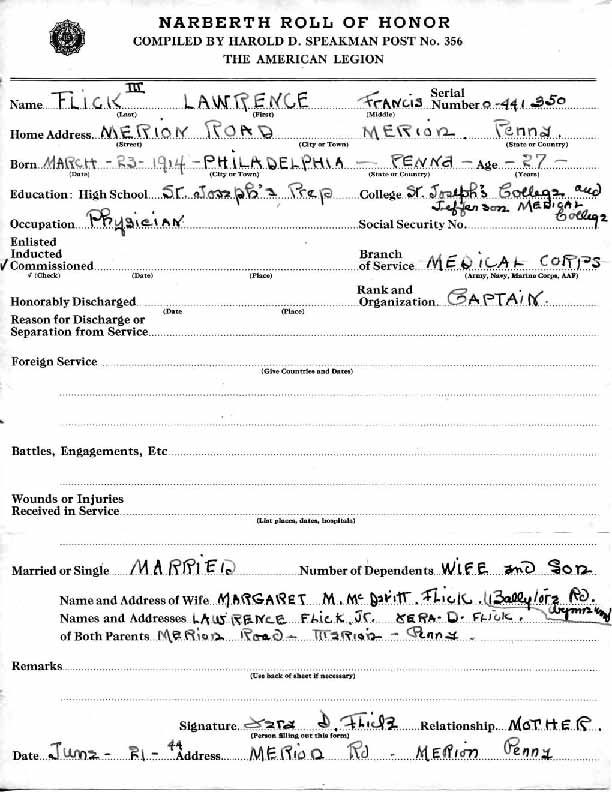 NARBERTH ROLL OF HONOR
COMPILED BY HAROLD D. SPEAKMAN POST No. 356
THE AMERICAN LEGION
Name FLICK III LAWRENCE FRANCIS Serial Number 0-441350
(Last) (First) (Middle)
Home Address MERION ROAD MERION. Penna.
(Street) (City or Town) (State or Country)
Born MARCH-23-1914-PHILADELPHIA - PENNA - Age -27-
(Date) (City or Town) (State or Country) (Years)
Education: High School St. Joseph's Prep College St. Joseph's College and Jefferson MEDICAL College
Occupation Physician Social Security No.
Enlisted
Inducted Branch
√ Commissioned of Service MEDICAL CORPS
√ (Check) (Date) (Place) (Army, Navy, Marine Corps, AAF)
Rank and
Honorably Discharged Organization CAPTAIN.
(Date (Place)
Reason for Discharge or
Separation from Service
Foreign Service
(Give Countries and Dates)
Battles, Engagements, Etc
Wounds or Injuries
Received in Service
(List places, dates, hospitals)
Married or Single MARRIED Number of Dependents WIFE and Son
Name and Address of Wife MARGARET M. McDevitt Flick. Rd.
Names and Addresses LAWRENCE Flick, Jr. -D- FLICK.
of Both Parents MERION Road - MERION - Penna.
Remarks
(Use back of sheet if necessary)
Signature D. Flick Relationship MOTHER.
(Person filling out this form)
Date June - 21 - 44 Address MERION Rd - MERION Penna